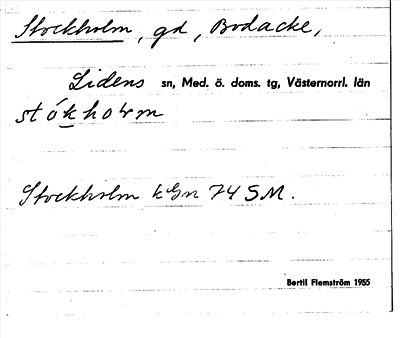 Stockholm, gd, Bodacke,
Lidens sn, Med. ö. doms. tg, Västernorrl. län
stókholm
Stockholm kGn 74 SM.
Bertil Flemström 1955